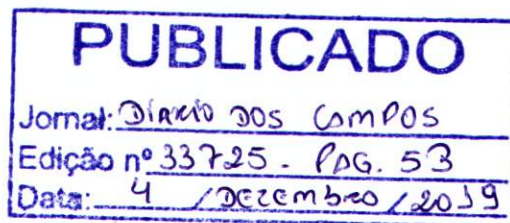 PUBLICADO
Jornal: DIARIO DOS CAMPOS
Edição nº 33725 - PAG. 53
Data: 4 / DEZEMBRO / 2019